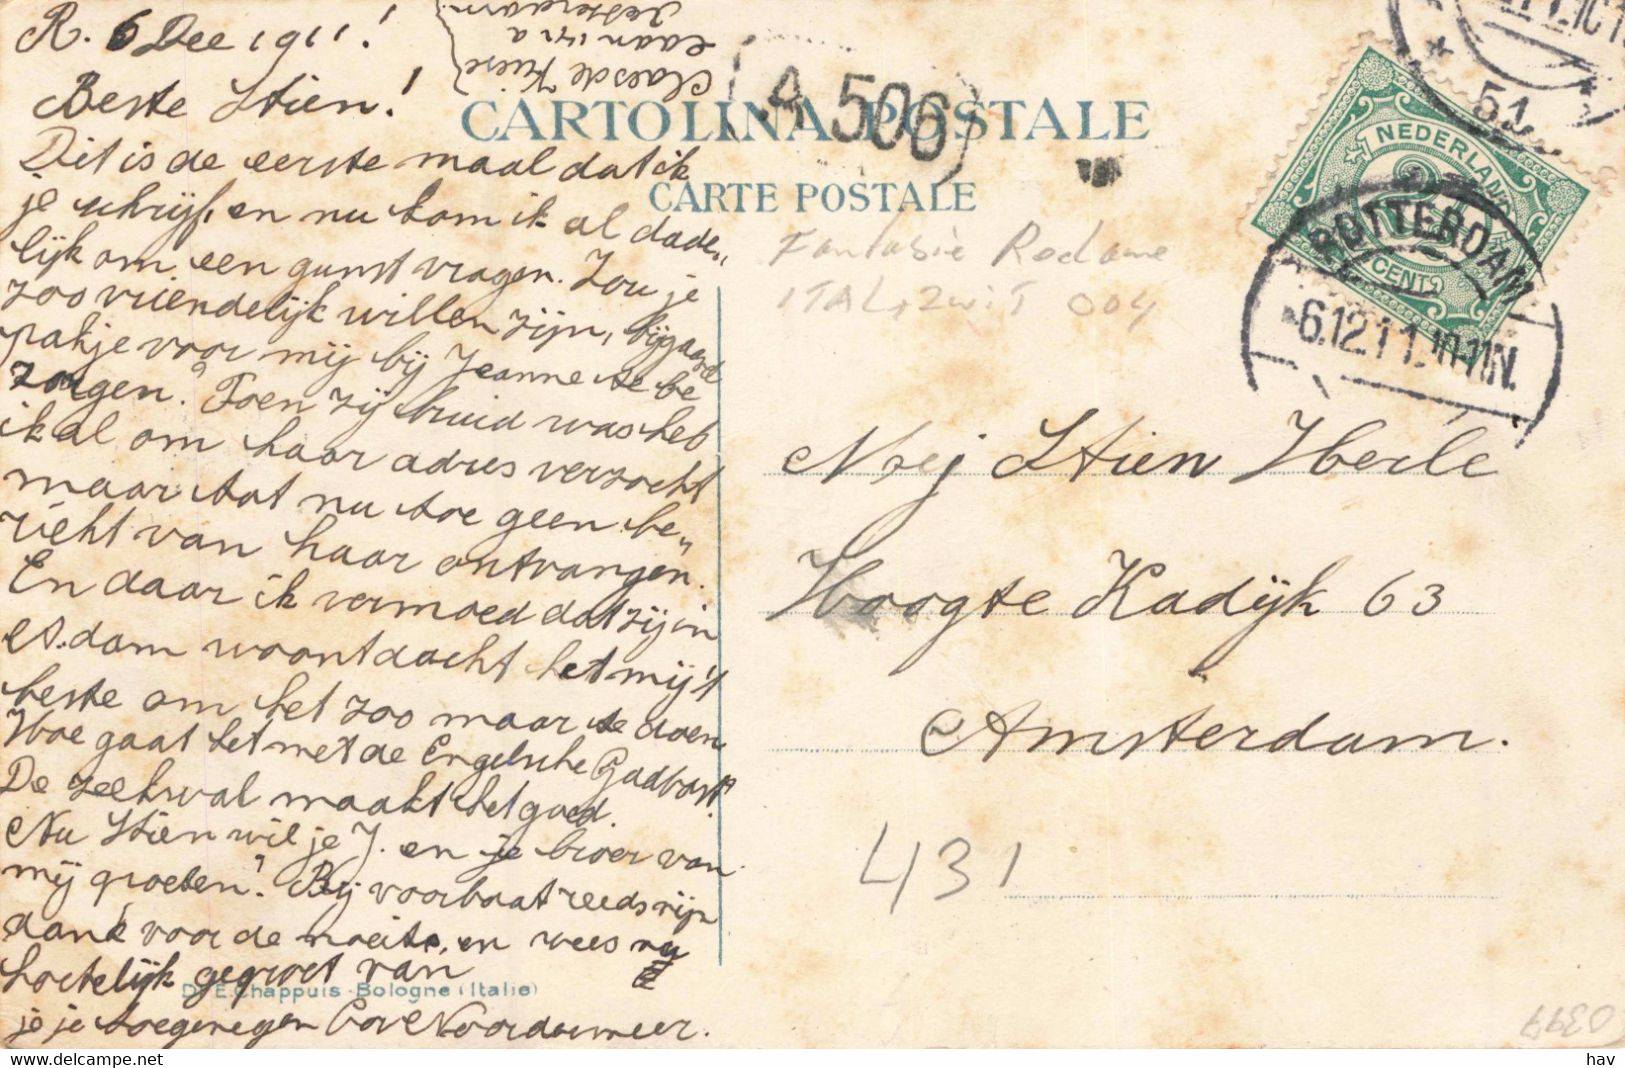 R. 6 Dec 1911!
Beste Stien!
Dit is de eerste maal dat ik
je schrijf, en nu kom ik al dade„
lijk om een gunst vragen. Zou je
zoo vriendelijk willen zijn, bijgaand
pakje voor mij bij Jeanne te be
zorgen? Toen zij bruid was heb
ik al om haar adres verzocht
maar tot nu toe geen be„
richt van haar ontvangen.
En daar ik vermoed dat zij in
A.dam woont dacht het mij 't
beste om het zoo maar te doen
Hoe gaat het met de Engelsche
De zeehval maakt het goed.
Nu Stien wil je J. en je broer van
mij groeten? Bij voorbaat reeds mijn
dank voor de moeite, en wees nu
hartelijk gegroet van
je je toegenegen Cor Noordermeer.
Claes de
laan 171 a
Rotterdam
CARTOLINA POSTALE
CARTE POSTALE
A 506
Fantasie Reclame
ITAL, ZWIT 004
51
NEDERLAND
2½
CENT
ROTTERDAM
-6.12.11. 10-11N.
Mej Stien Herle
Hoogte Kadijk 63
Amsterdam.
431
Dr E. Chappuis - Bologne (Italie)
0399
delcampe.net
hav